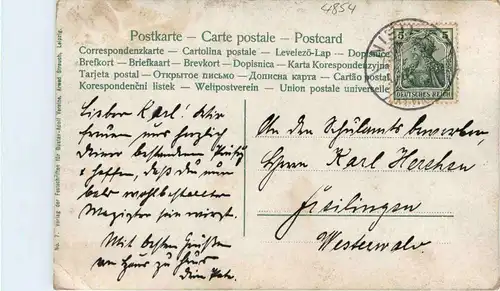 4854
Postkarte — Carte postale — Postcard
Correspondenzkarte — Cartolina postale — Levelező-Lap — Dopisnice
Brefkort — Briefkaart — Brevkort — Dopisnica — Karta Korespondencyjna
Tarjeta postal — Открытое письмо — Дописна карта — Cartão postal
Korespondenční lístek — Weltpostverein — Union postale universelle
5 5
DEUTSCHES REICH
Lieber Karl! Wir
freuen uns herzlich
Deiner bestandenen
& hoffen, daß du nun
bald wohlbestallter
Magister sein wirst.
Mit besten Grüßen
von Haus zu Haus
Dein
An den Schulamtsbewerber,
Herrn Karl
Westerwald.
No. 7. Verlag der Festschriften für Gustav-Adolf Vereine, Arwed Strauch, Leipzig.